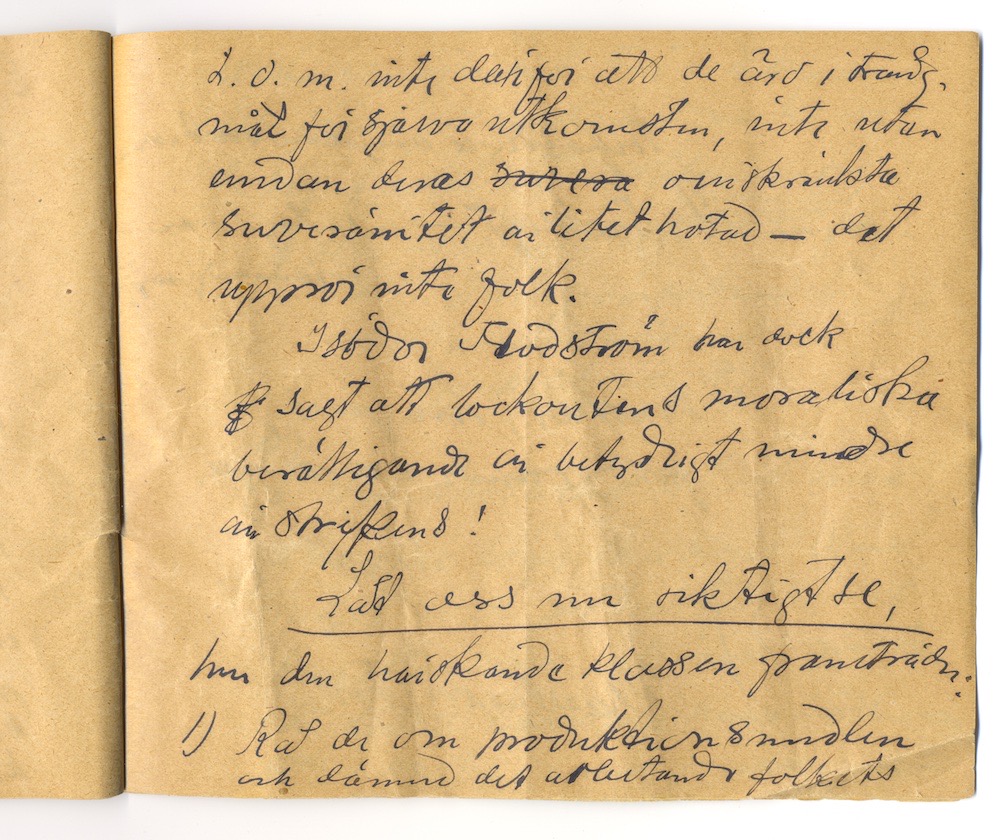 D. v. m. inte därför att de äro i trång-
mål för själva utkomsten, inte utan
endan deras suvera oinskränkta
suveränitet är litet hotad — det
uppror inte folk.
Isidor Flodström har dock
sagt att lockoutens moraliska
berättigande är betydligt mindre
än strejkens!
Låt oss nu riktigt se,
hur den härskande klassen framträder:
1) Rår de om produktionsmedlen
och därmed det arbetande folkets